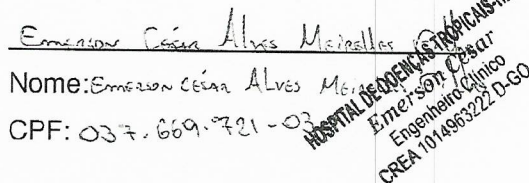 Emerson César Alves Meirelles
Nome: Emerson César Alves
CPF: 037.669.721-03
HOSPITAL DE DOENÇAS TROPICAIS
Emerson Cesar
Engenheiro Clínico
CREA 1014963222 D-GO